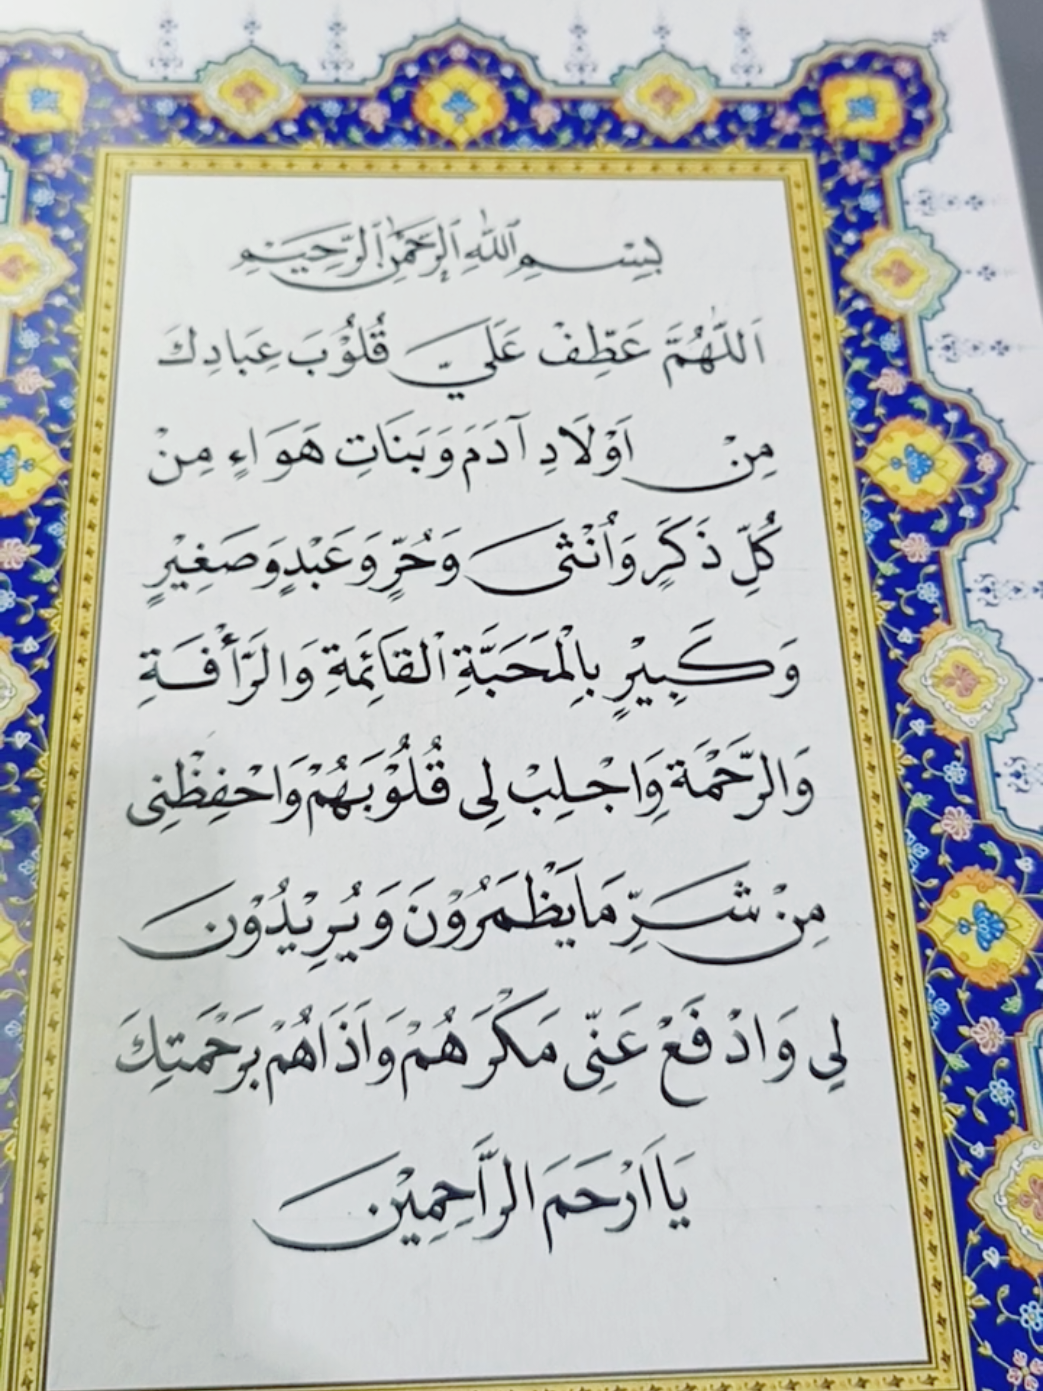 بِسْمِ ٱللهِ ٱلرَّحْمٰنِ ٱلرَّحِيْمِ
اَللّٰهُمَّ عَطِّفْ عَلَيَّ قُلُوْبَ عِبَادِكَ
مِنْ اَوْلَادِ آدَمَ وَبَنَاتِ هَوَاءٍ مِنْ
كُلِّ ذَكَرٍ وَاُنْثىٰ وَحُرٍّ وَعَبْدٍ وَصَغِيْرٍ
وَكَبِيْرٍ بِالْمَحَبَّةِ الْقَائِمَةِ وَالرَّأْفَةِ
وَالرَّحْمَةِ وَاجْلِبْ لِى قُلُوْبَهُمْ وَاحْفِظْنِى
مِنْ شَرِّ مَا يَظْمَرُوْنَ وَيُرِيْدُوْنَ
لِي وَادْفَعْ عَنِّى مَكْرَهُمْ وَاَذَاهُمْ بِرَحْمَتِكَ
يَا اَرْحَمَ الرَّاحِمِيْنَ